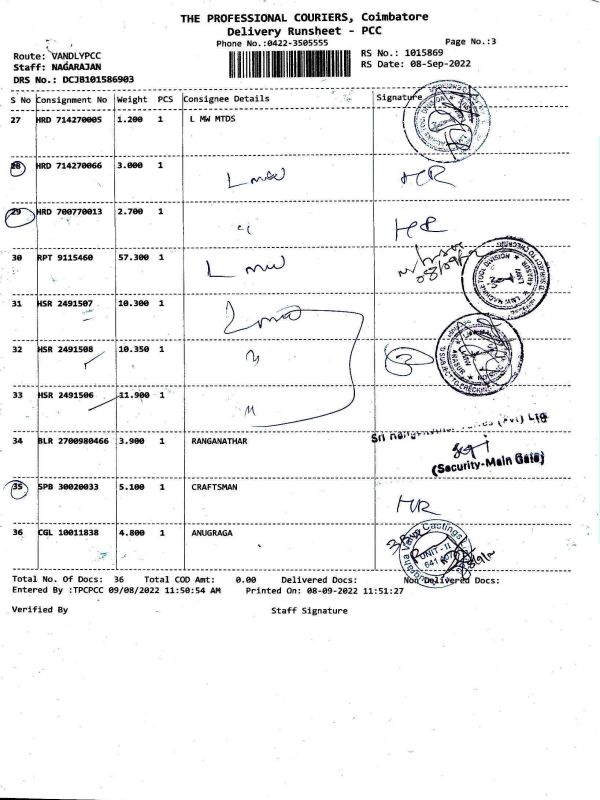 THE PROFESSIONAL COURIERS, Coimbatore
Delivery Runsheet - PCC
Phone No.:0422-3505555
Page No.:3
Route: VANDLYPCC
RS No.: 1015869
Staff: NAGARAJAN
RS Date: 08-Sep-2022
DRS No.: DCJB101586903
S No Consignment No Weight PCS Consignee Details Signature
27 HRD 714270005 1.200 1 L MW MTDS
28 HRD 714270066 3.000 1 L mw HR
29 HRD 700770013 2.700 1 HR
30 RPT 9115460 57.300 1 L mw
31 HSR 2491507 10.300 1 L mw
32 HSR 2491508 10.350 1
33 HSR 2491506 11.900 1
34 BLR 2700980466 3.900 1 RANGANATHAR
(Security-Main Gate)
35 SPB 30020033 5.100 1 CRAFTSMAN HR
36 CGL 10011838 4.800 1 ANUGRAGA
UNIT - II
Total No. Of Docs: 36 Total COD Amt: 0.00 Delivered Docs: Non Delivered Docs:
Entered By :TPCPCC 09/08/2022 11:50:54 AM Printed On: 08-09-2022 11:51:27
Verified By Staff Signature